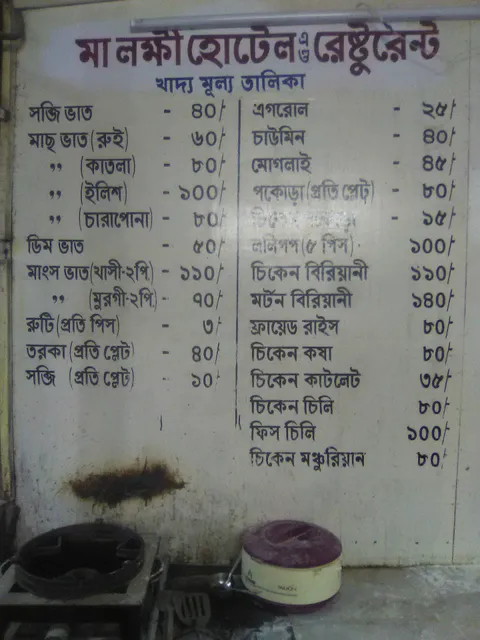 মা লক্ষী হোটেল এণ্ড রেষ্টুরেন্ট
খাদ্য মূল্য তালিকা
সব্জি ভাত - ৪০/-
মাছ ভাত (রুই) - ৬০/-
" (কাতলা) - ৮০/-
" (ইলিশ) - ১০০/-
" (চারাপোনা) - ৮০/-
ডিম ভাত - ৫০/-
মাংস ভাত (খাসী-২পি) - ১১০/-
" (মুরগী-২পি) - ৭০/-
রুটি (প্রতি পিস) - ৩/-
তরকা (প্রতি প্লেট) - ৪০/-
সব্জি (প্রতি প্লেট) - ১০/-
এগরোল - ২৫/-
চাউমিন - ৪০/-
মোগলাই - ৪৫/-
পকোড়া (প্রতি প্লেট) - ৮০/-
চিকেন - ১৫/-
ললিপপ (৫ পিস) - ১০০/-
চিকেন বিরিয়ানী ১১০/-
মটন বিরিয়ানী ১৪০/-
ফ্রায়েড রাইস ৮০/-
চিকেন কষা ৮০/-
চিকেন কাটলেট ৩৫/-
চিকেন চিলি ৮০/-
ফিস চিলি ১০০/-
চিকেন মঞ্চুরিয়ান ৮০/-